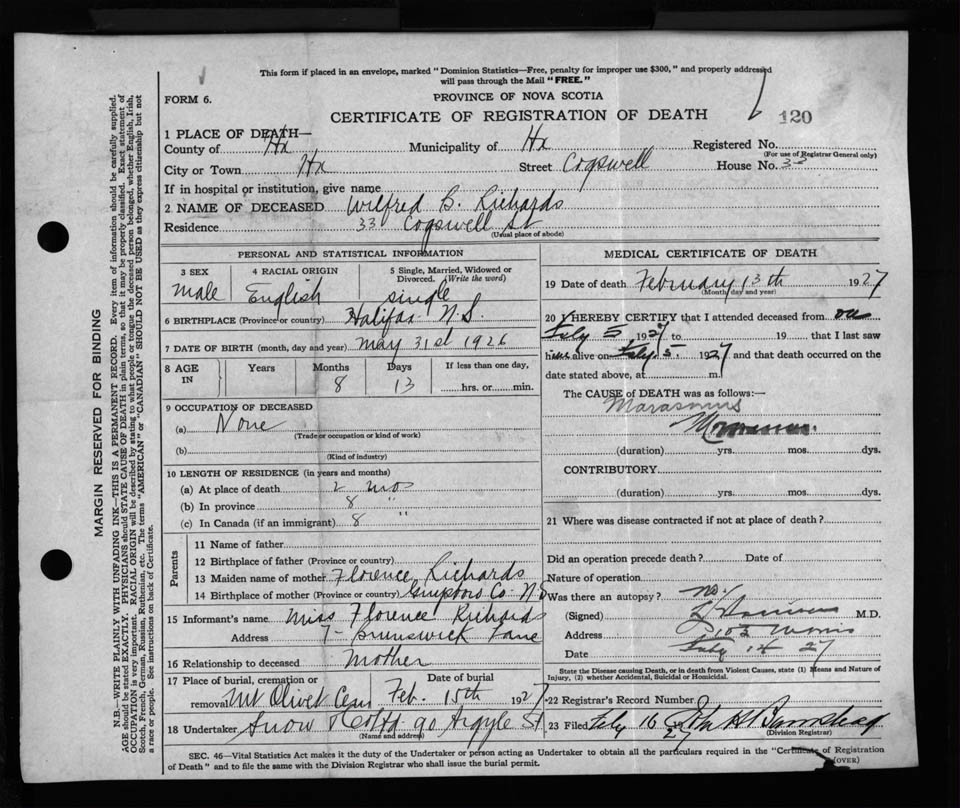 This form if placed in an envelope, marked "Dominion Statistics—Free, penalty for improper use $300," and properly addressed
will pass through the Mail "FREE."
FORM 6.
PROVINCE OF NOVA SCOTIA
CERTIFICATE OF REGISTRATION OF DEATH
120
1 PLACE OF DEATH—
County of Hx Municipality of Hx Registered No.
(For use of Registrar General only)
City or Town Hx Street Cogswell House No. 33
If in hospital or institution, give name
2 NAME OF DECEASED Wilfred B. Richards
Residence 33 Cogswell St
(Usual place of abode)
PERSONAL AND STATISTICAL INFORMATION
3 SEX 4 RACIAL ORIGIN 5 Single, Married, Widowed or
Divorced. (Write the word)
male English single
6 BIRTHPLACE (Province or country) Halifax N.S.
7 DATE OF BIRTH (month, day and year) May 31st 1926
8 AGE IN Years Months Days If less than one day,
8 13 hrs. or min.
9 OCCUPATION OF DECEASED
(a) None
(Trade or occupation or kind of work)
(b)
(Kind of industry)
10 LENGTH OF RESIDENCE (in years and months)
(a) At place of death 2 mos
(b) In province 8 "
(c) In Canada (if an immigrant) 8 "
Parents
11 Name of father
12 Birthplace of father (Province or country)
13 Maiden name of mother Florence Richards
14 Birthplace of mother (Province or country) Guysboro Co. N.S
15 Informant's name Miss Florence Richards
Address 7 - Brunswick Lane
16 Relationship to deceased mother
17 Place of burial, cremation or Date of burial
removal Mt Olivet Cem Feb. 15th 1927
18 Undertaker Snow & Co Ltd 90 Argyle St
(Name and address)
MEDICAL CERTIFICATE OF DEATH
19 Date of death February 13th 1927
(Month, day and year)
20 I HEREBY CERTIFY that I attended deceased from on
Feby 5 1927 to 19 that I last saw
him alive on Feby 5. 1927 and that death occurred on the
date stated above, at m.
The CAUSE OF DEATH was as follows:—
Marasmus
(duration) yrs. mos. dys.
CONTRIBUTORY
(duration) yrs. mos. dys.
21 Where was disease contracted if not at place of death?
Did an operation precede death? Date of
Nature of operation
Was there an autopsy? no.
(Signed) M.D.
Address Morris
Date Feby 14 27
State the Disease causing Death, or in death from Violent Causes, state (1) Means and Nature of
Injury, (2) whether Accidental, Suicidal or Homicidal.
22 Registrar's Record Number
23 Filed Feby 16 192
(Division Registrar)
SEC. 46—Vital Statistics Act makes it the duty of the Undertaker or person acting as Undertaker to obtain all the particulars required in the "Certificate of Registration
of Death" and to file the same with the Division Registrar who shall issue the burial permit.
(OVER)
MARGIN RESERVED FOR BINDING
N.B.—WRITE PLAINLY WITH UNFADING INK—THIS IS A PERMANENT RECORD. Every item of information should be carefully supplied.
AGE should be stated EXACTLY. PHYSICIANS should STATE CAUSE OF DEATH in plain terms, so that it may be properly classified. Exact statement of
OCCUPATION is very important. RACIAL ORIGIN will be described by stating to what people or tongue the deceased person belonged, whether English, Irish,
Scotch, French, German, Russian, Ruthenian, etc. The terms "AMERICAN" or "CANADIAN" SHOULD NOT BE USED as they express citizenship but not
a race or people. See instructions on back of Certificate.